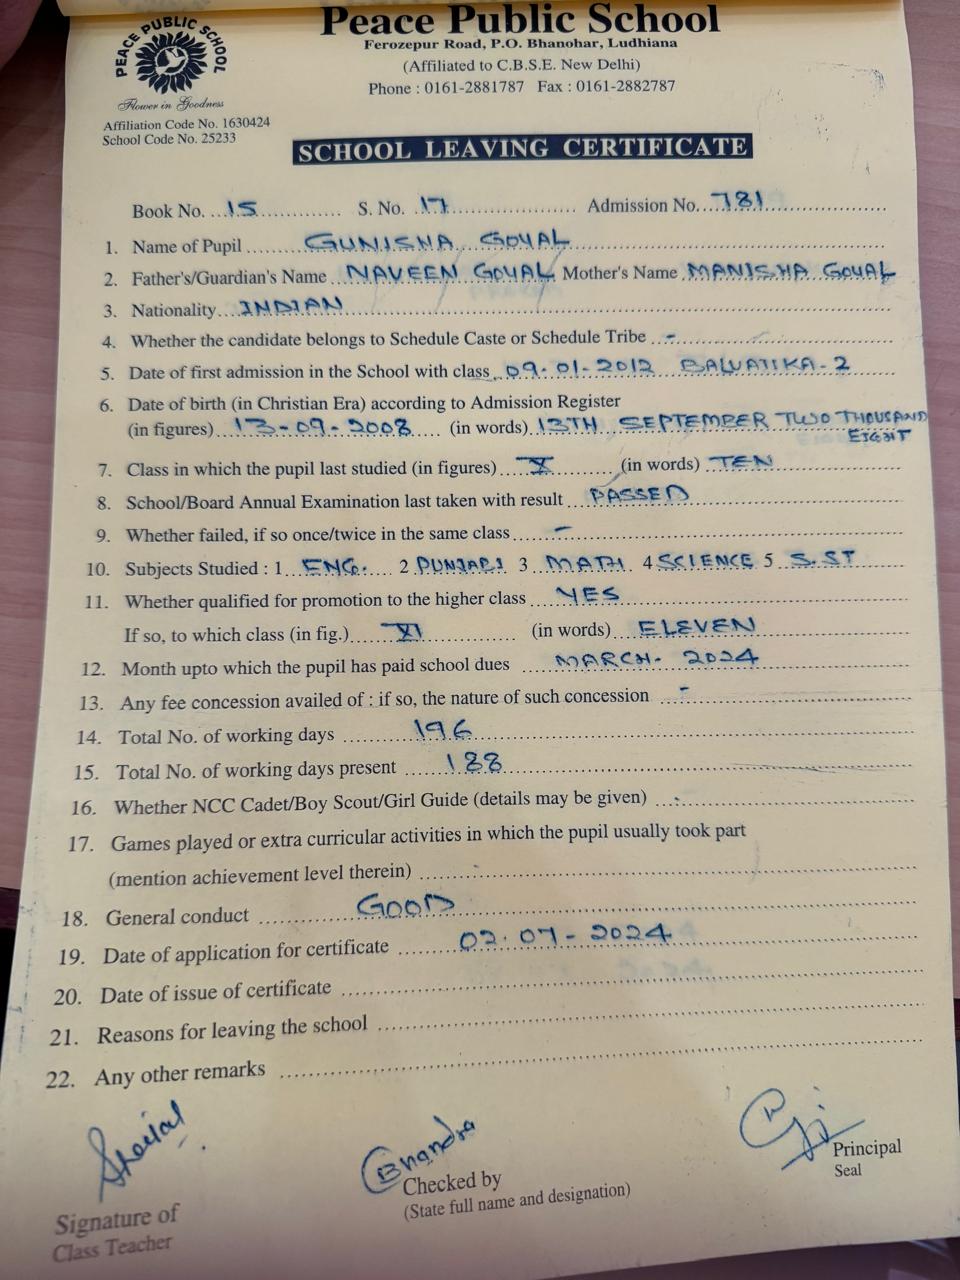 Peace Public School
PEACE PUBLIC SCHOOL
Ferozepur Road, P.O. Bhanohar, Ludhiana
(Affiliated to C.B.S.E. New Delhi)
Flower in Goodness
Phone : 0161-2881787 Fax : 0161-2882787
Affiliation Code No. 1630424
School Code No. 25233
SCHOOL LEAVING CERTIFICATE
Book No. 15 S. No. 17 Admission No. 781
1. Name of Pupil GUNISHA GOYAL
2. Father's/Guardian's Name NAVEEN GOYAL Mother's Name MANISHA GOYAL
3. Nationality INDIAN
4. Whether the candidate belongs to Schedule Caste or Schedule Tribe -
5. Date of first admission in the School with class 09-01-2012 BALVATIKA-2
6. Date of birth (in Christian Era) according to Admission Register
(in figures) 13-09-2008 (in words) 13TH SEPTEMBER TWO THOUSAND
EIGHT
7. Class in which the pupil last studied (in figures) X (in words) TEN
8. School/Board Annual Examination last taken with result PASSED
9. Whether failed, if so once/twice in the same class -
10. Subjects Studied : 1 ENG. 2 PUNJABI 3 MATH 4 SCIENCE 5 S.ST
11. Whether qualified for promotion to the higher class YES
If so, to which class (in fig.) XI (in words) ELEVEN
12. Month upto which the pupil has paid school dues MARCH-2024
13. Any fee concession availed of : if so, the nature of such concession -
14. Total No. of working days 196
15. Total No. of working days present 188
16. Whether NCC Cadet/Boy Scout/Girl Guide (details may be given) -
17. Games played or extra curricular activities in which the pupil usually took part
(mention achievement level therein) -
18. General conduct GOOD
19. Date of application for certificate 02-07-2024
20. Date of issue of certificate
21. Reasons for leaving the school
22. Any other remarks
Bhandra
Signature of
Class Teacher
Checked by
(State full name and designation)
Principal
Seal